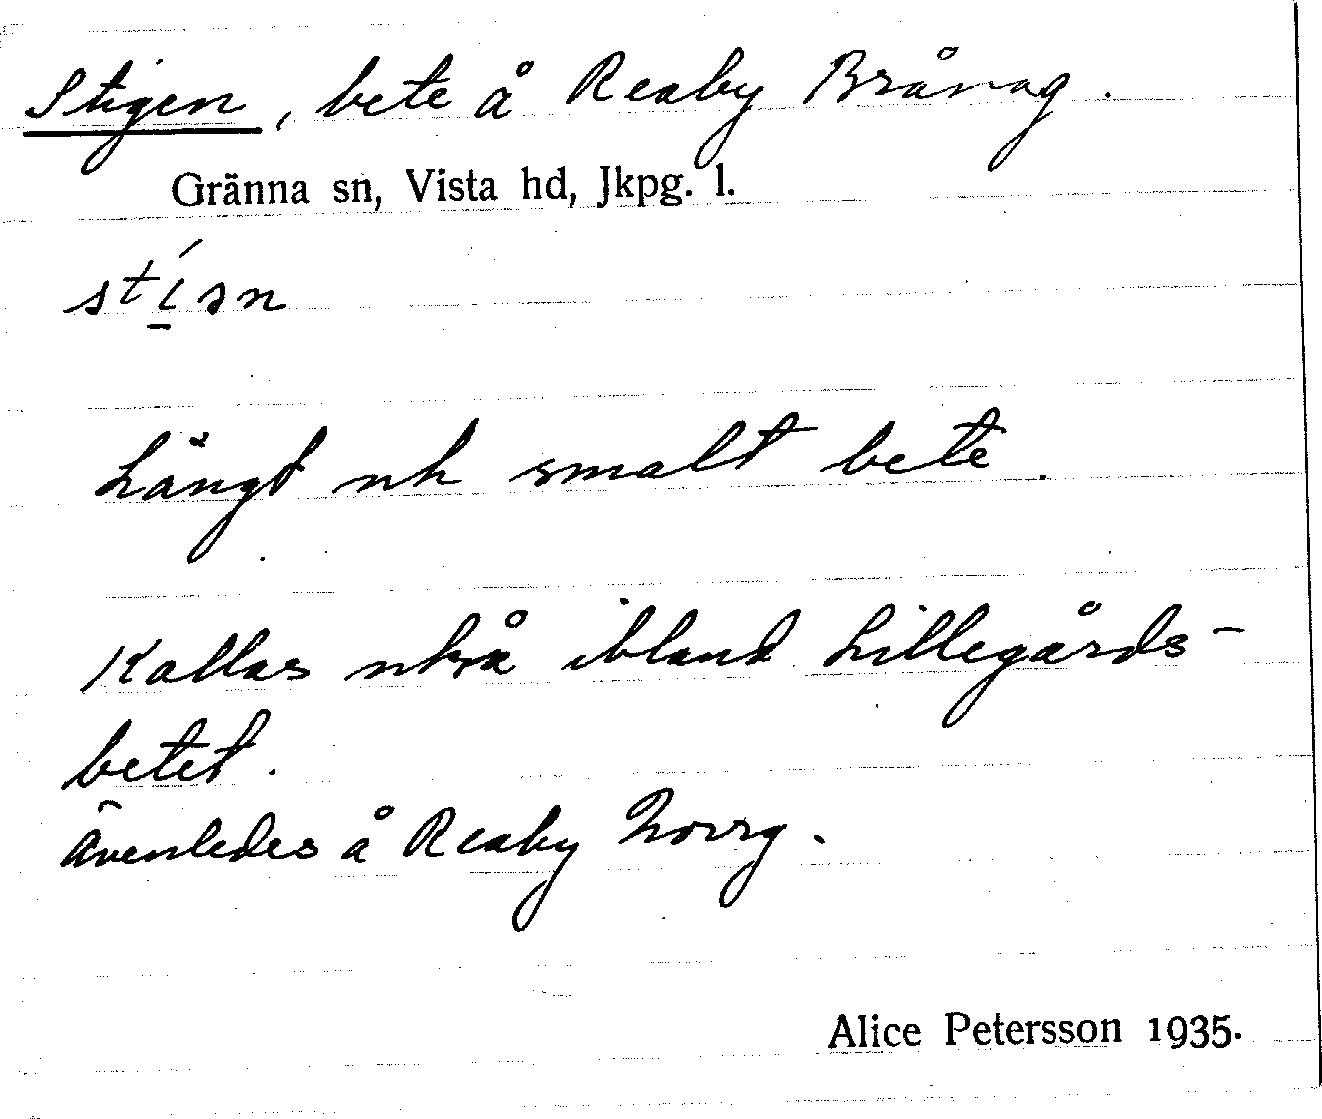 Stigen, bete å Reaby Brånag.
Gränna sn, Vista hd, Jkpg. l.
Långt och smalt bete.
Kallas också ibland Lillegårds-
betet.
Ävenledes å Reaby Norrg.
Alice Petersson 1935.